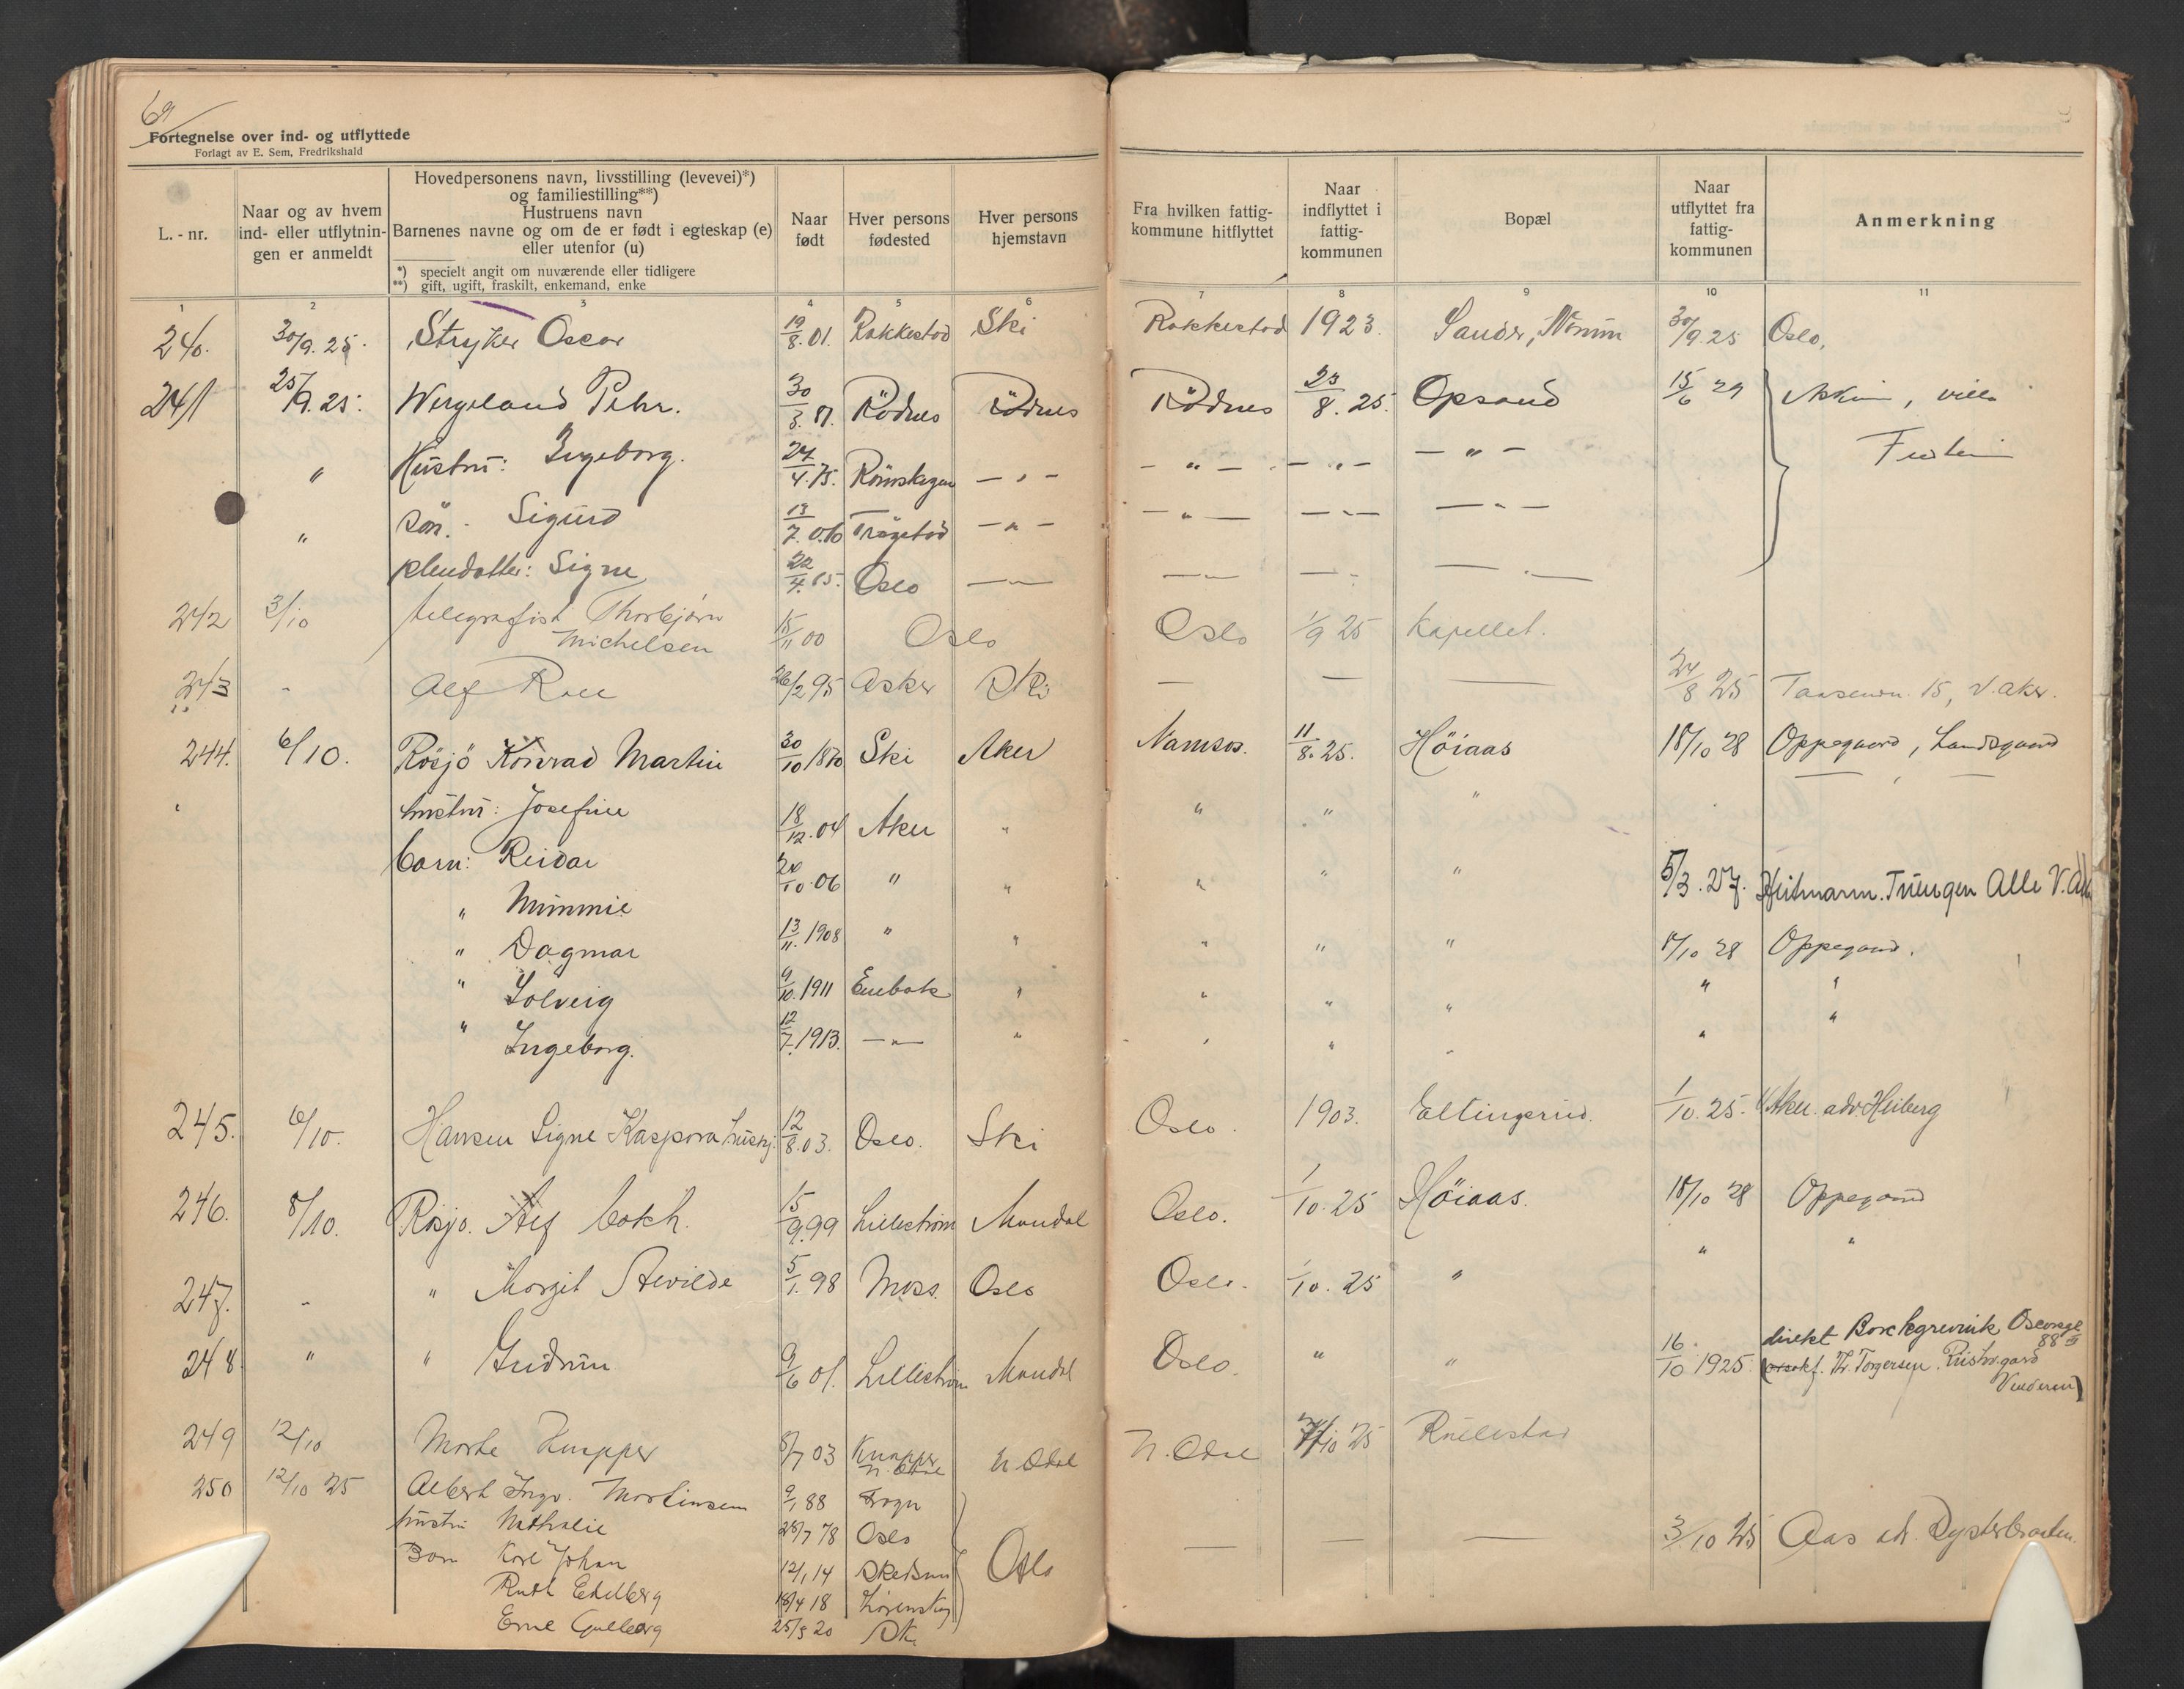 69
Fortegnelse over ind- og utflyttede
Forlagt av E. Sem, Fredrikshald
L.-nr.
Naar og av hvem ind- eller utflytningen er anmeldt
Hovedpersonens navn, livsstilling (levevei)*)
og familiestilling**)
Hustruens navn
Barnenes navne og om de er født i egteskap (e)
eller utenfor (u)
*) specielt angit om nuværende eller tidligere
**) gift, ugift, fraskilt, enkemand, enke
Naar født
Hver persons fødested
Hver persons hjemstavn
Fra hvilken fattigkommune hitflyttet
Naar indflyttet i fattigkommunen
Bopæl
Naar utflyttet fra fattigkommunen
Anmerkning
1 2 3 4 5 6 7 8 9 10 11
240. 30/9. 25. Stryker Oscar 19/8. 01. Rakkestad Ski Rakkestad 1923. Sander, 30/9. 25 Oslo.
241 25/9. 25. Wergeland Pehr. 30/3. Rödnes Rödnes Rödnes 23/8. 25. Opsand 15/6 29 Askim, villa
" Hustru: Ingeborg. 27/4. 75. Römskogen — " — — " — — " — — " —
" Sön: Sigurd 13/7. 06 Trøgstad — " — — " — — " — — " —
pleiedatter: Signe 22/4. 15. Oslo — " — — " — — " — — " —
242 3/10 telegrafist Thorbjørn
Michelsen 15/11 00 Oslo Oslo 1/9 25 Kapellet.
243 - Alf 26/2 95 Asker Ski — — — 24/8 25 15, V. Aker.
244. 6/10. Rösjö Konrad Martin 30/10 1870 Ski Aker Namsos. 11/8. 25. Höiaas 18/10 28 Oppegaard, Landsgaard
hustru: Josefine 18/12. 04 Aker " " " "
barn: Reidar 20/10. 06 " " " " " 5/3. 27. Heitmann. Tuengen Alle V. Aker
" Mimmie
" Dagmar 13/11. 1908 " " " " " 18/10 28 Oppegaard.
" Solveig 9/10. 1911 Enebak " " " " " "
" Ingeborg. 12/7. 1913. — " — " " " " " "
245. 6/10. Hansen Signe Kaspora hushj. 12/8. 03. Oslo. Ski Oslo. 1903. Eltingsrud. 1/10. 25. V. Aker. adv Heiberg
246. 8/10. Rösjö. Alf 15/9. 99 Lilleström Mandal Oslo. 1/10. 25 Höiaas. 18/10 28 Oppegaard
247. - " Margit Alvilde 5/1. 98 Moss. Oslo Oslo. 1/10. 25 " " "
248 " " Gudrun 9/6 01. Lilleström Mandal Oslo. " " 16/10 1925 direkt Borchgrevink Oscarsgt 88 III
Torgersen.
Vinderen)
249 12/10 Marte Knapper 8/7 03 Knapper
N. Odal N. Odal N. Odal /10 25 Rullestad
250 12/10 25 Albert Ingv. Martinsen 9/1 88 Frogn Oslo — — — 3/10 25 Aas ad. Dysterbraaten.
hustru Nathalie 28/7 78 Oslo
Barn Karl Johan 12/1 14 Skedsmo
Ruth Edelberg 16/4 18 Lørenskog
Erne Gulborg 25/5 20 Ski